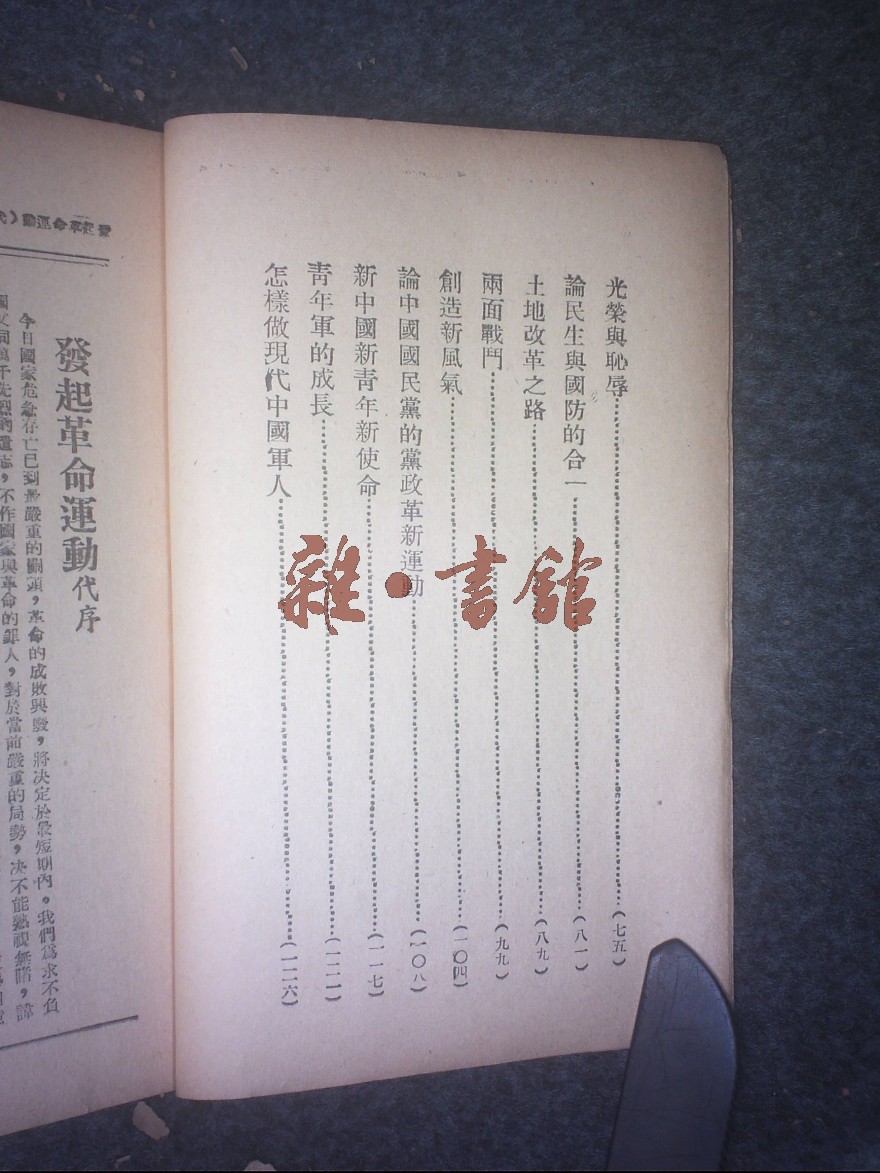 光榮與恥辱（七五）
論民生與國防的合一（八一）
土地改革之路（八九）
兩面戰鬥（九九）
創造新風氣（一〇四）
論中國國民黨的黨政革新運動（一〇八）
新中國新靑年新使命（一一七）
靑年軍的成長（一二二）
怎樣做現代中國軍人（一二六）
雜·書館
發起革命運動
發起革命運動代序
今日國家危急存亡已到最嚴重的關頭，革命的成敗興廢，將決定於最短期內。我們爲求不負
國父同萬千先烈的遺志，不作國家與革命的罪人，對於當前嚴重的局勢，决不能熟視無睹，諱